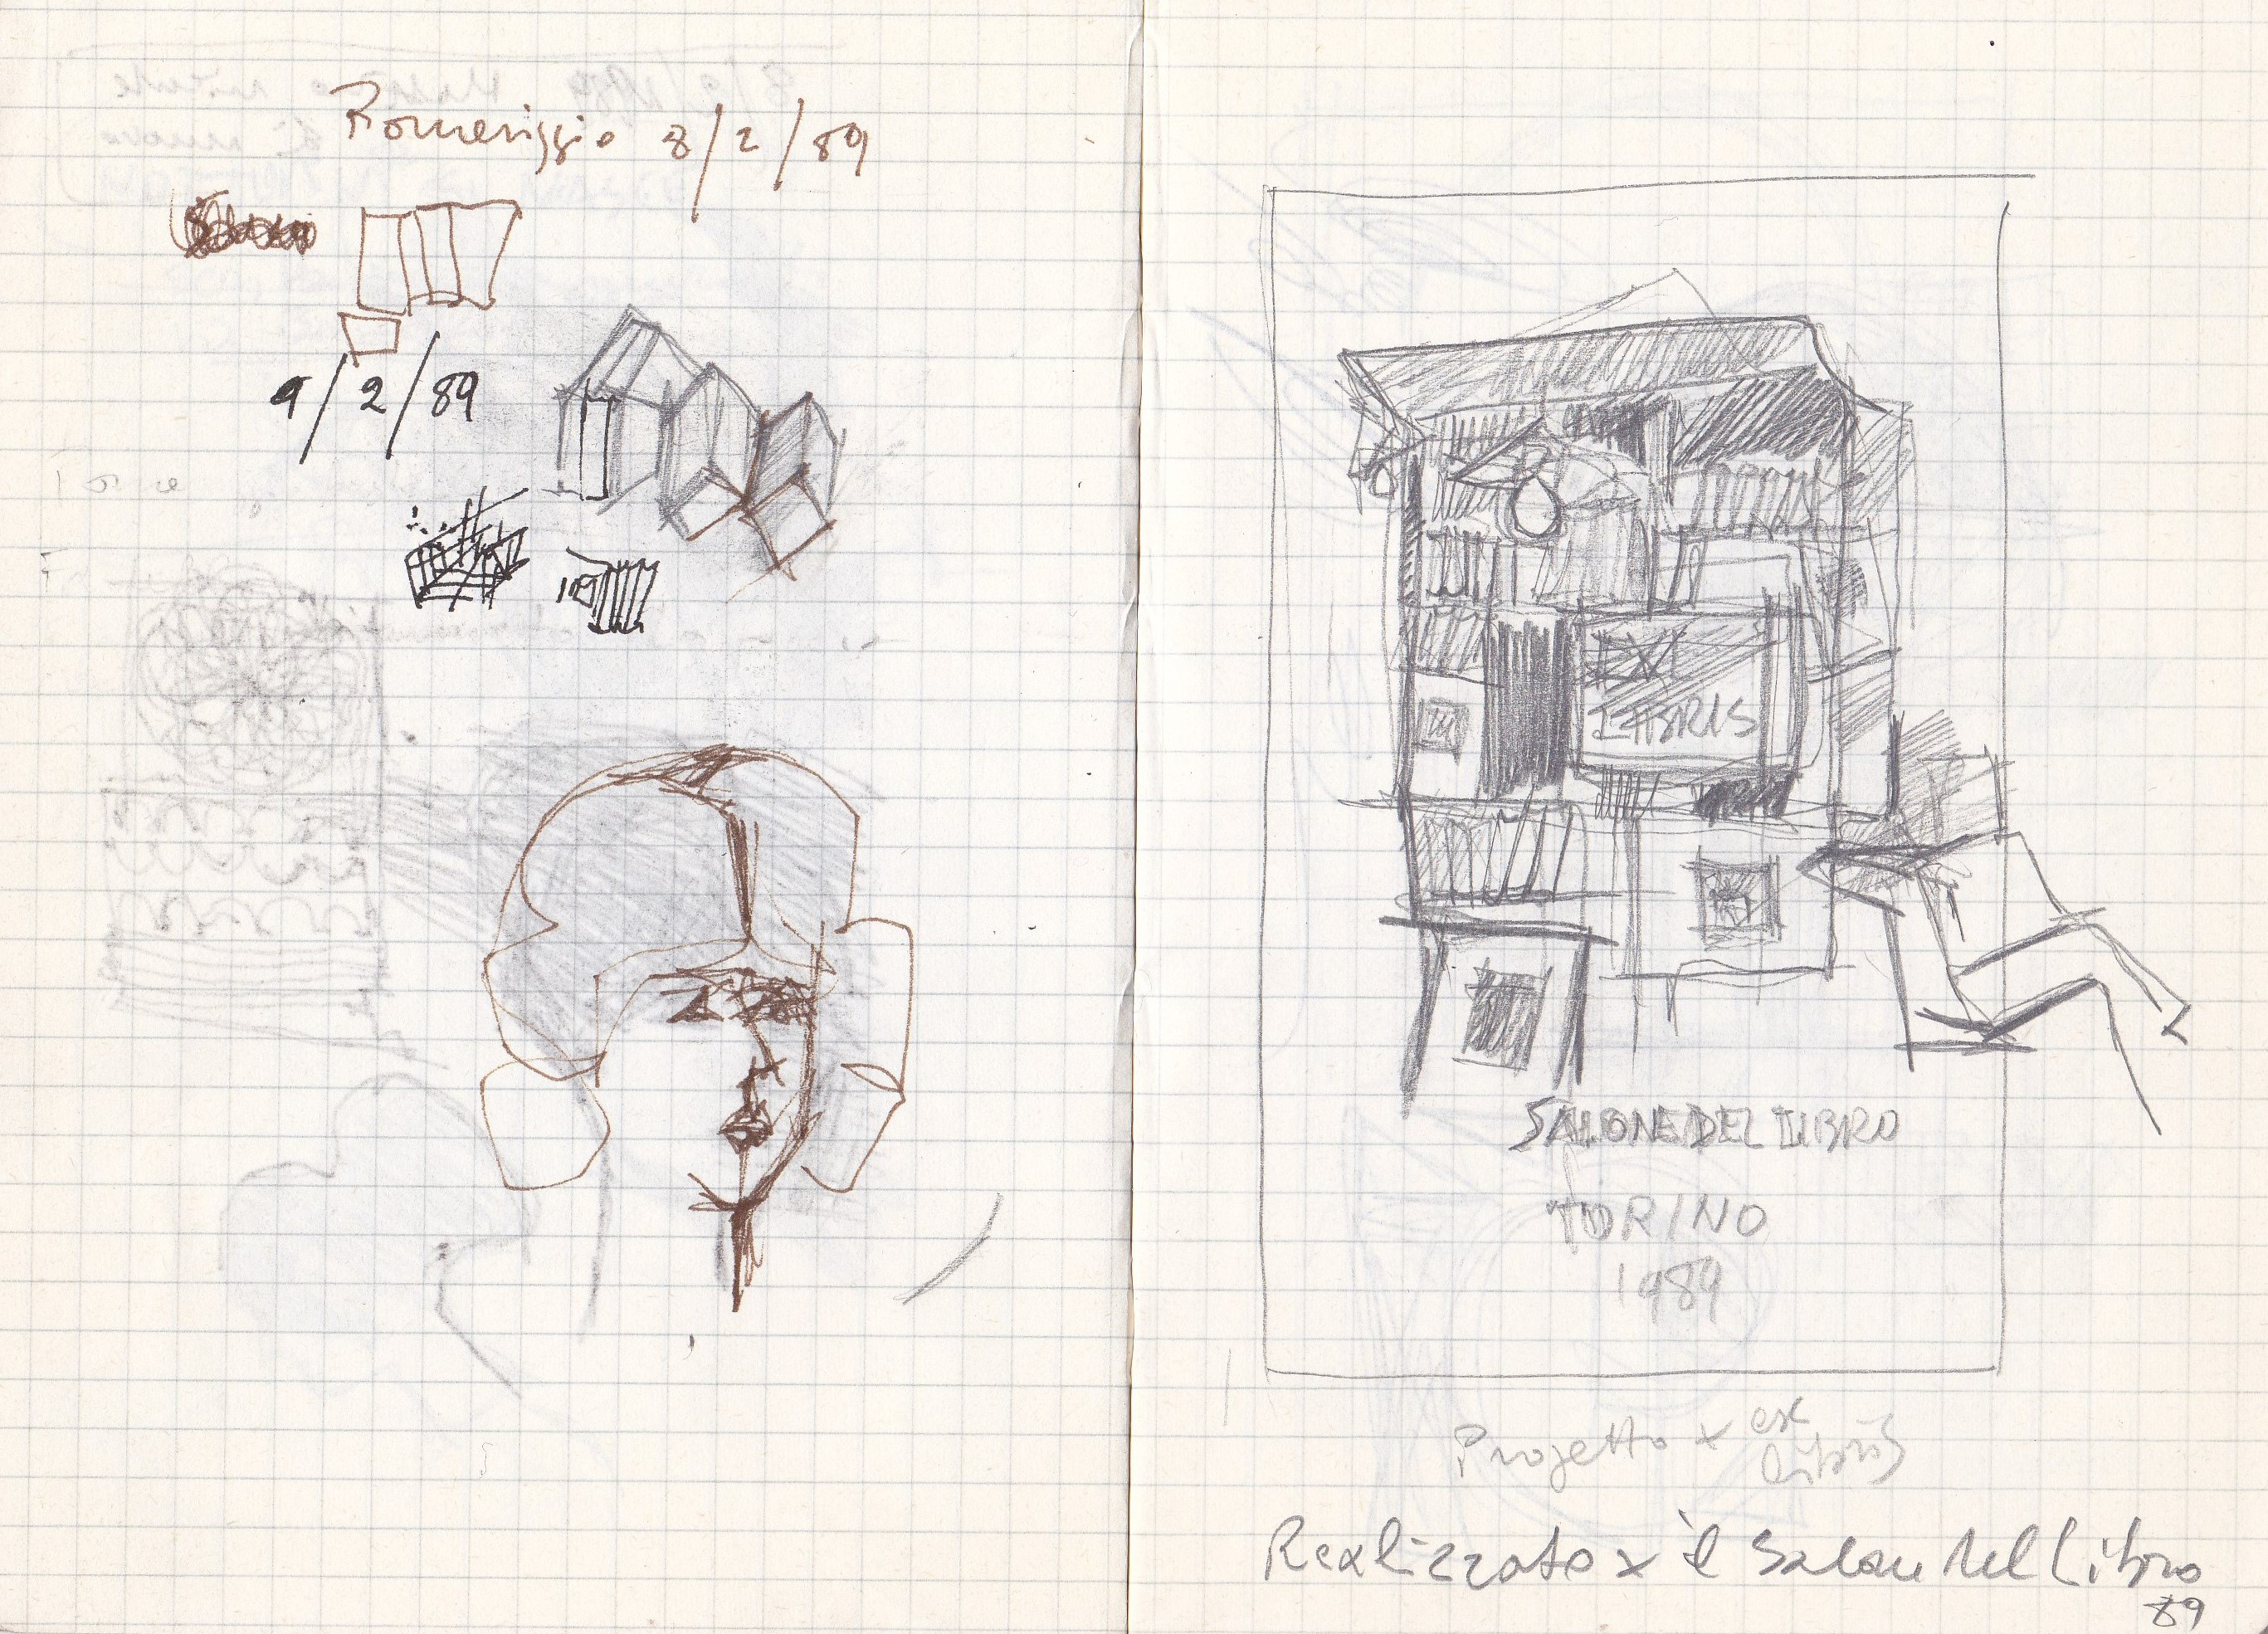 Pomeriggio 8/2/89
9/2/89
EX
LIBRIS
SALONE DEL LIBRO
TORINO
1989
Progetto x ex
libris
Realizzato x il Salone del Libro
89